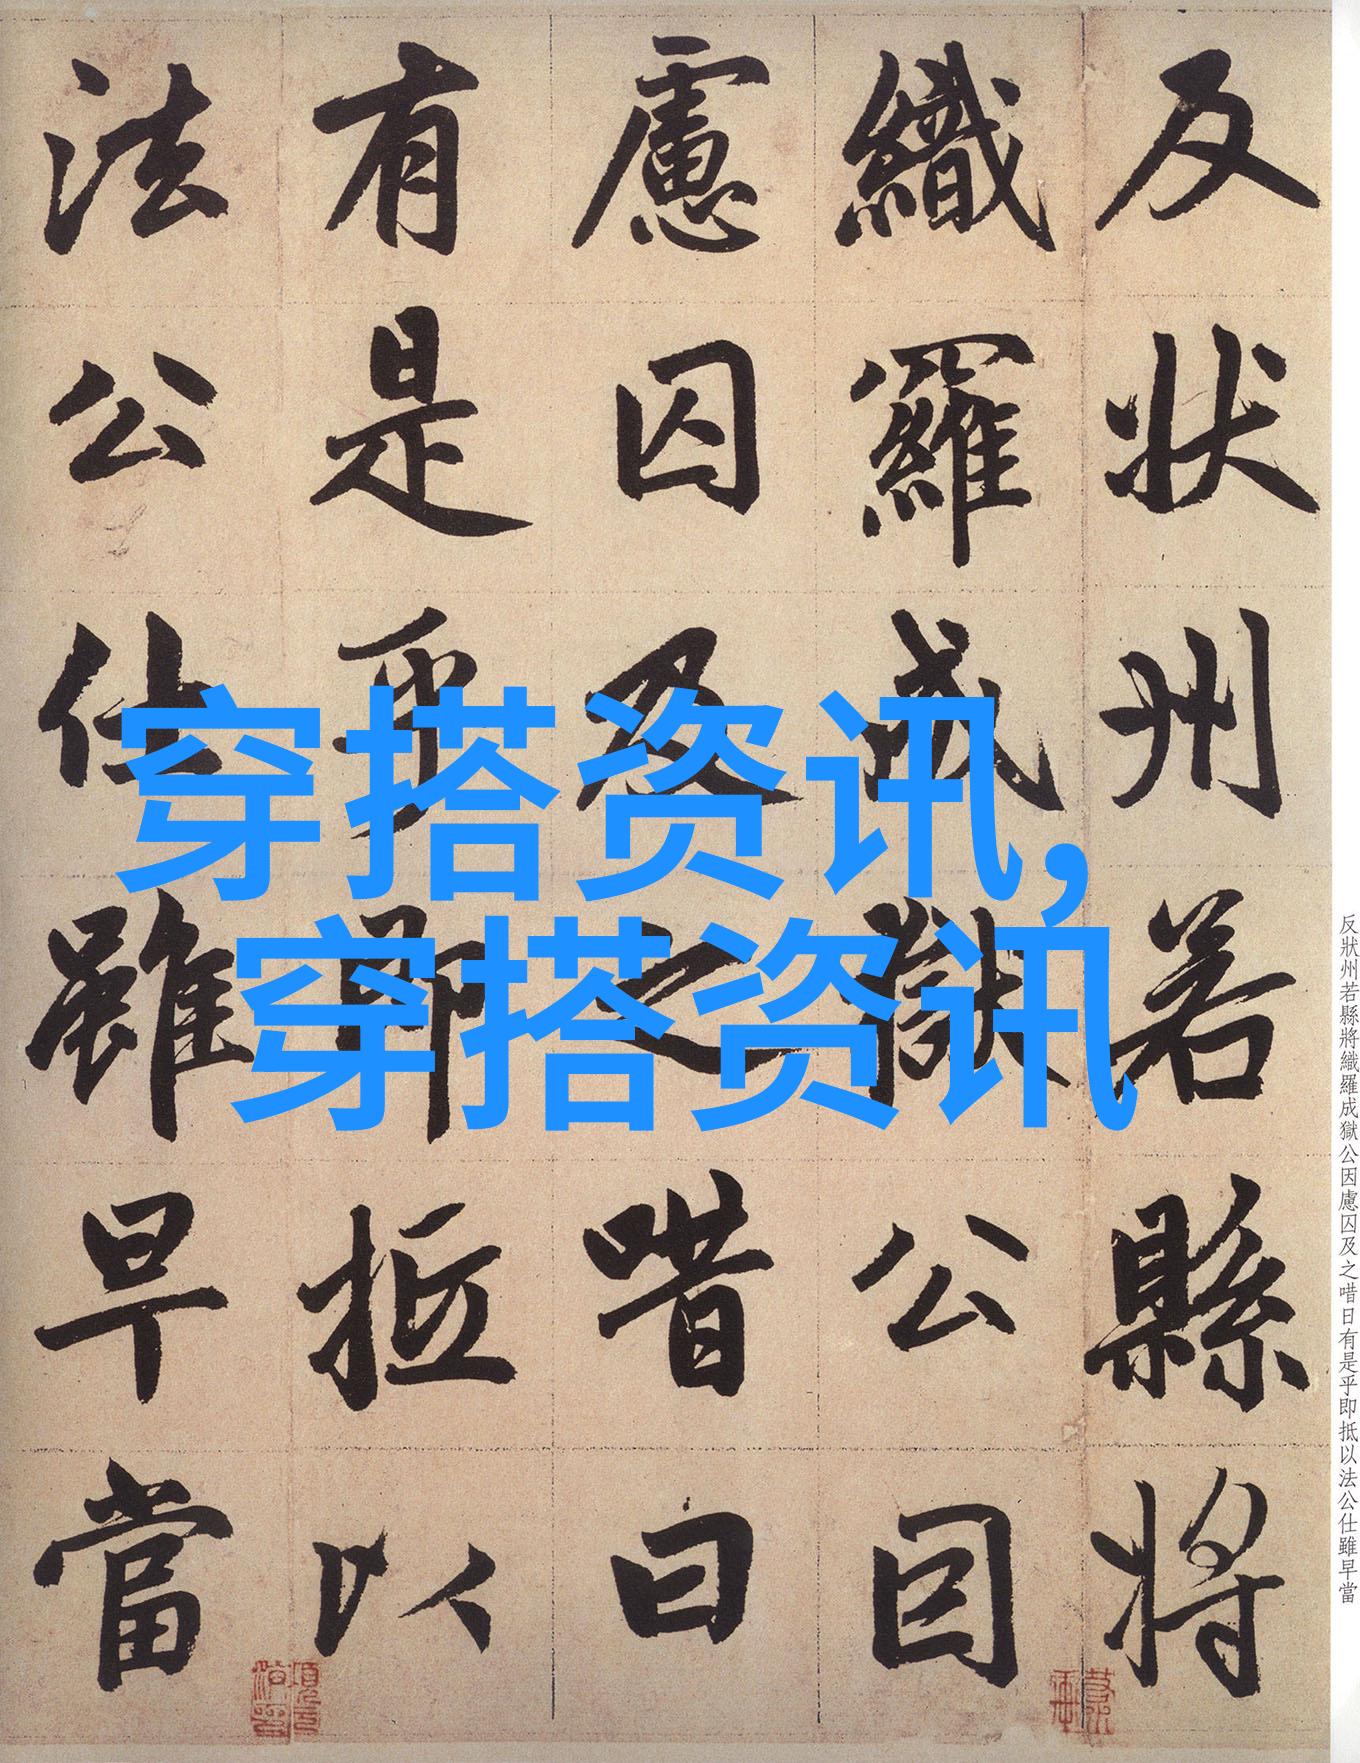 反狀州若縣將
織羅成獄公因
慮囚及之唶曰
有是乎即抵以
法公仕雖早當
穿搭资讯,
穿搭资讯
反狀州若縣將織羅成獄公因慮囚及之唶日有是乎即抵以法公仕雖早當